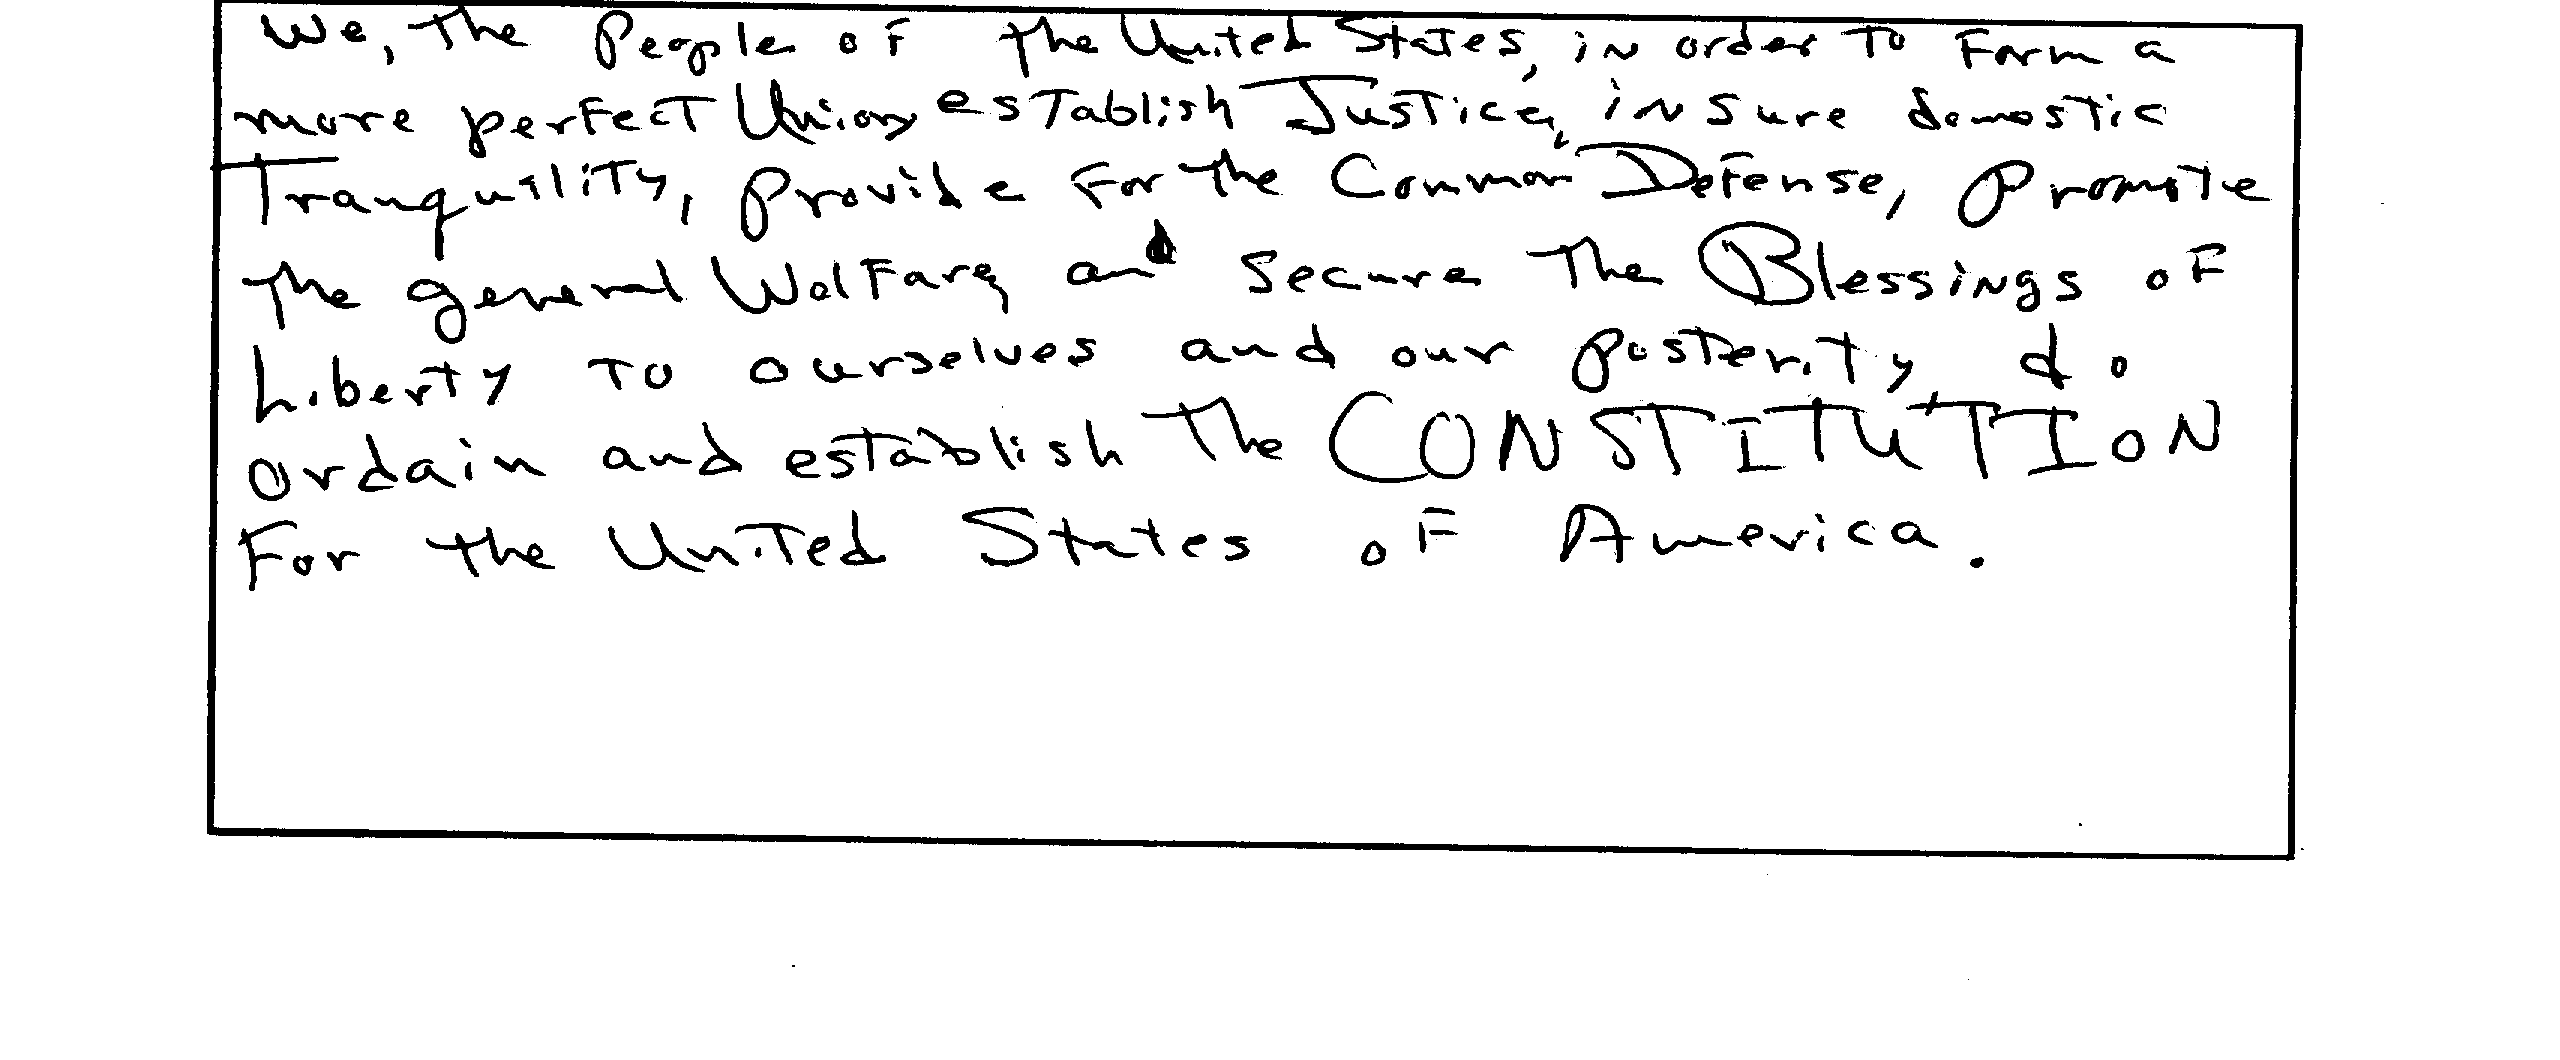 We, the People of the United States, in order to form a
more perfect Union, establish Justice, insure domostic
Tranquility, provide for the Common Defense, promote
the general Welfare, and secure the Blessings of
Liberty to ourselves and our posterity, do
ordain and establish the CONSTITUTION
For the United States of America.